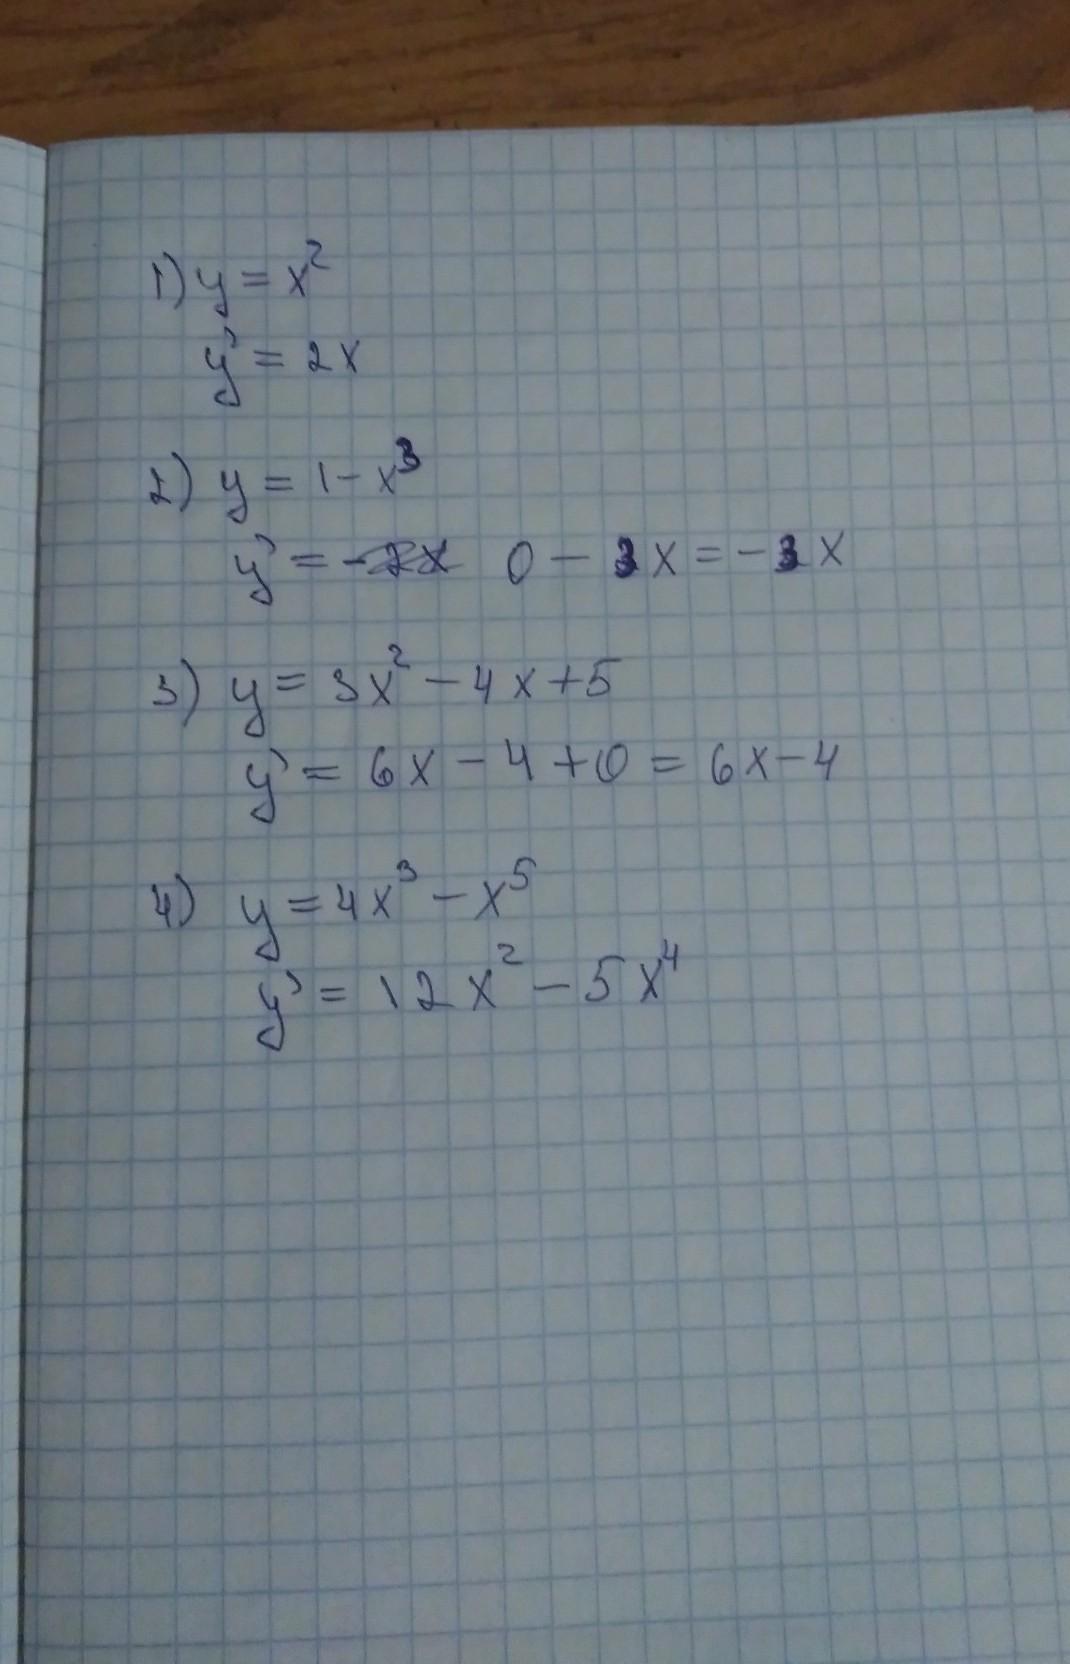 1) y = x²
y' = 2x
2) y = 1 - x³
y' = 0 - 3x = -3x
3) y = 3x² - 4x + 5
y' = 6x - 4 + 0 = 6x - 4
4) y = 4x³ - x⁵
y' = 12x² - 5x⁴